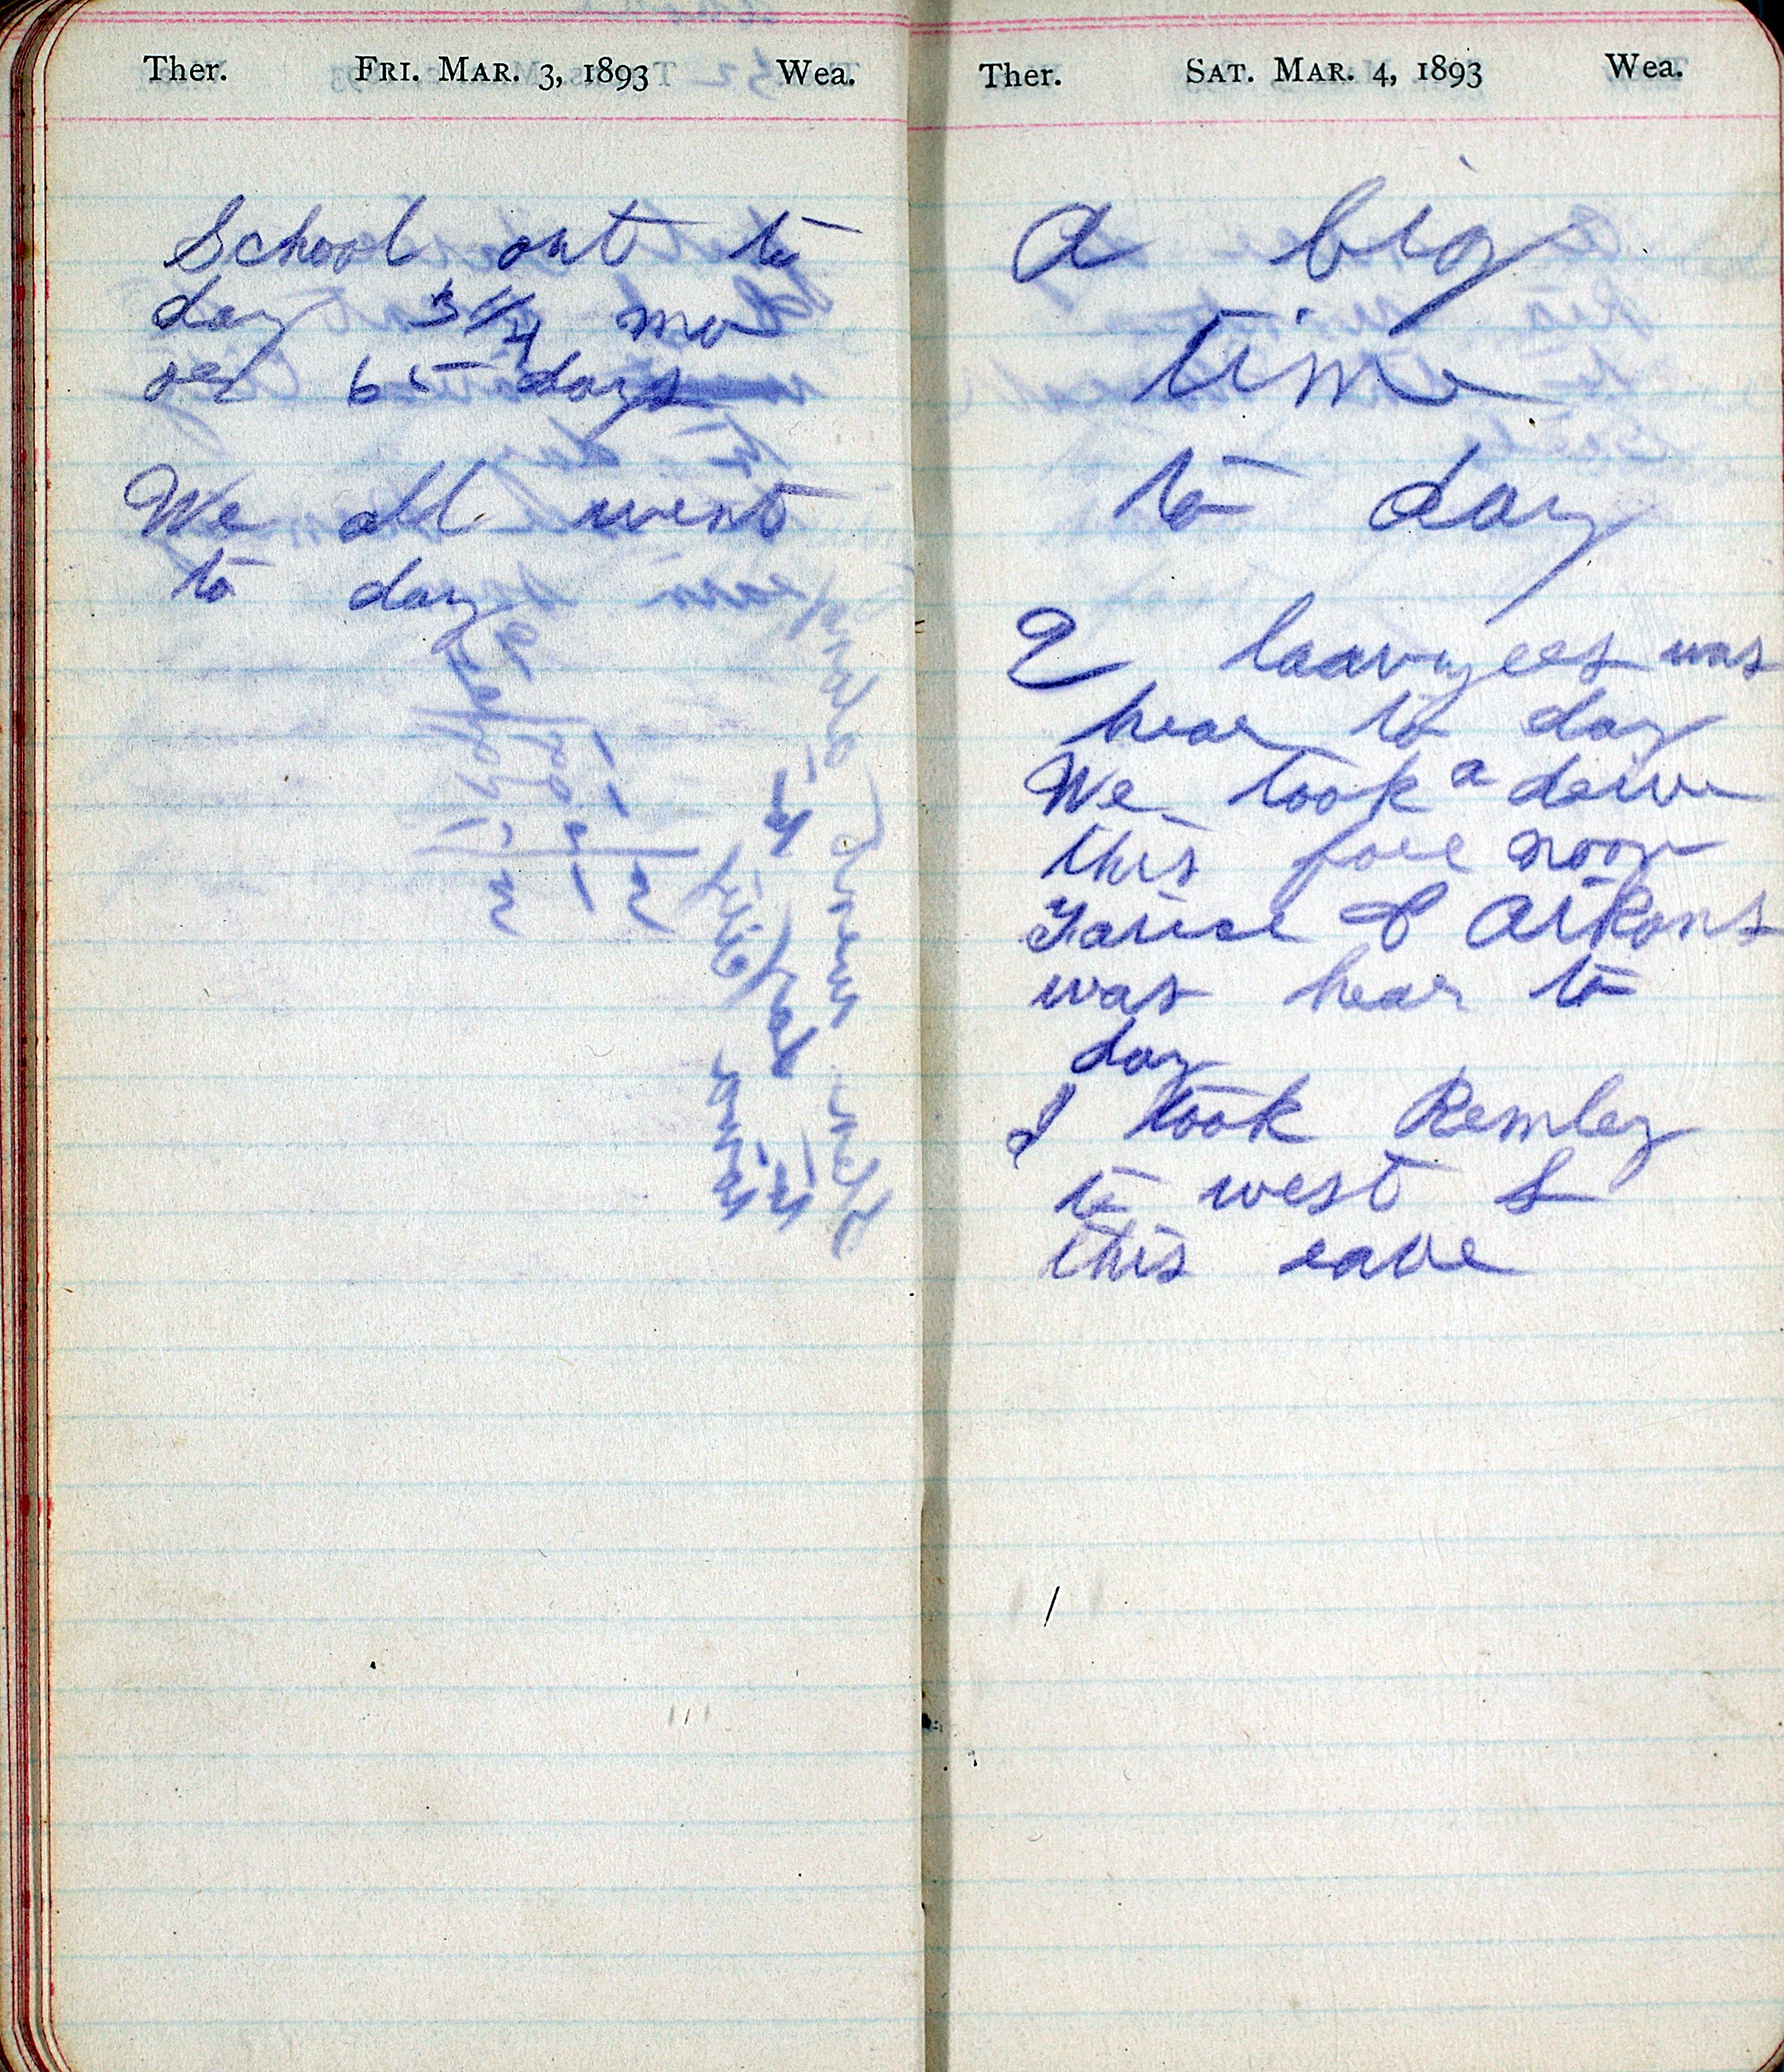 Ther. FRI. MAR. 3, 1893 Wea.
School out to
day 3 1/4 mo
or 65 days
We all went
to day
Ther. SAT. MAR. 4, 1893 Wea.
A big
time
to day
2 laawyers was
hear to day
We took a drive
this fore noon
& Arkons
was hear to
day
I took Remley
to west L
this eave